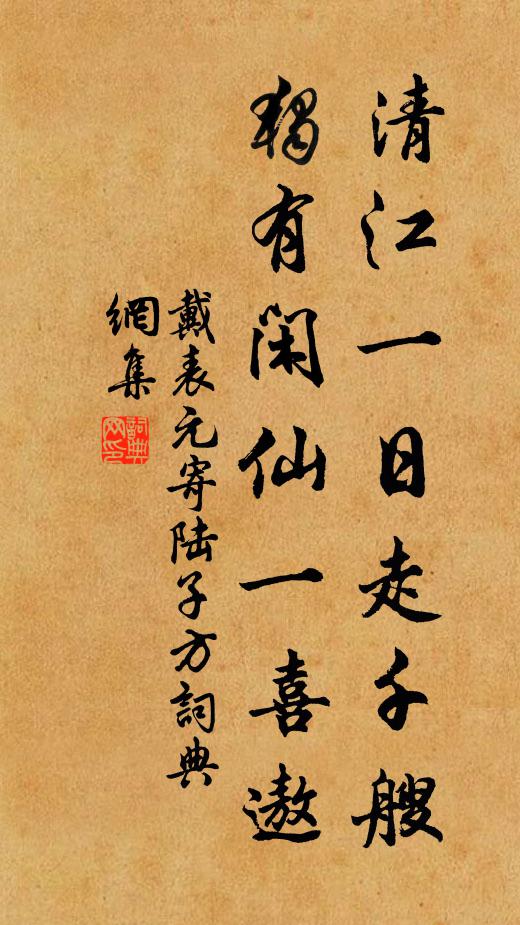 清江一日走千艘
獨有閑仙一喜遨
戴表元寄陆子方詞典
網集
詞典
网印